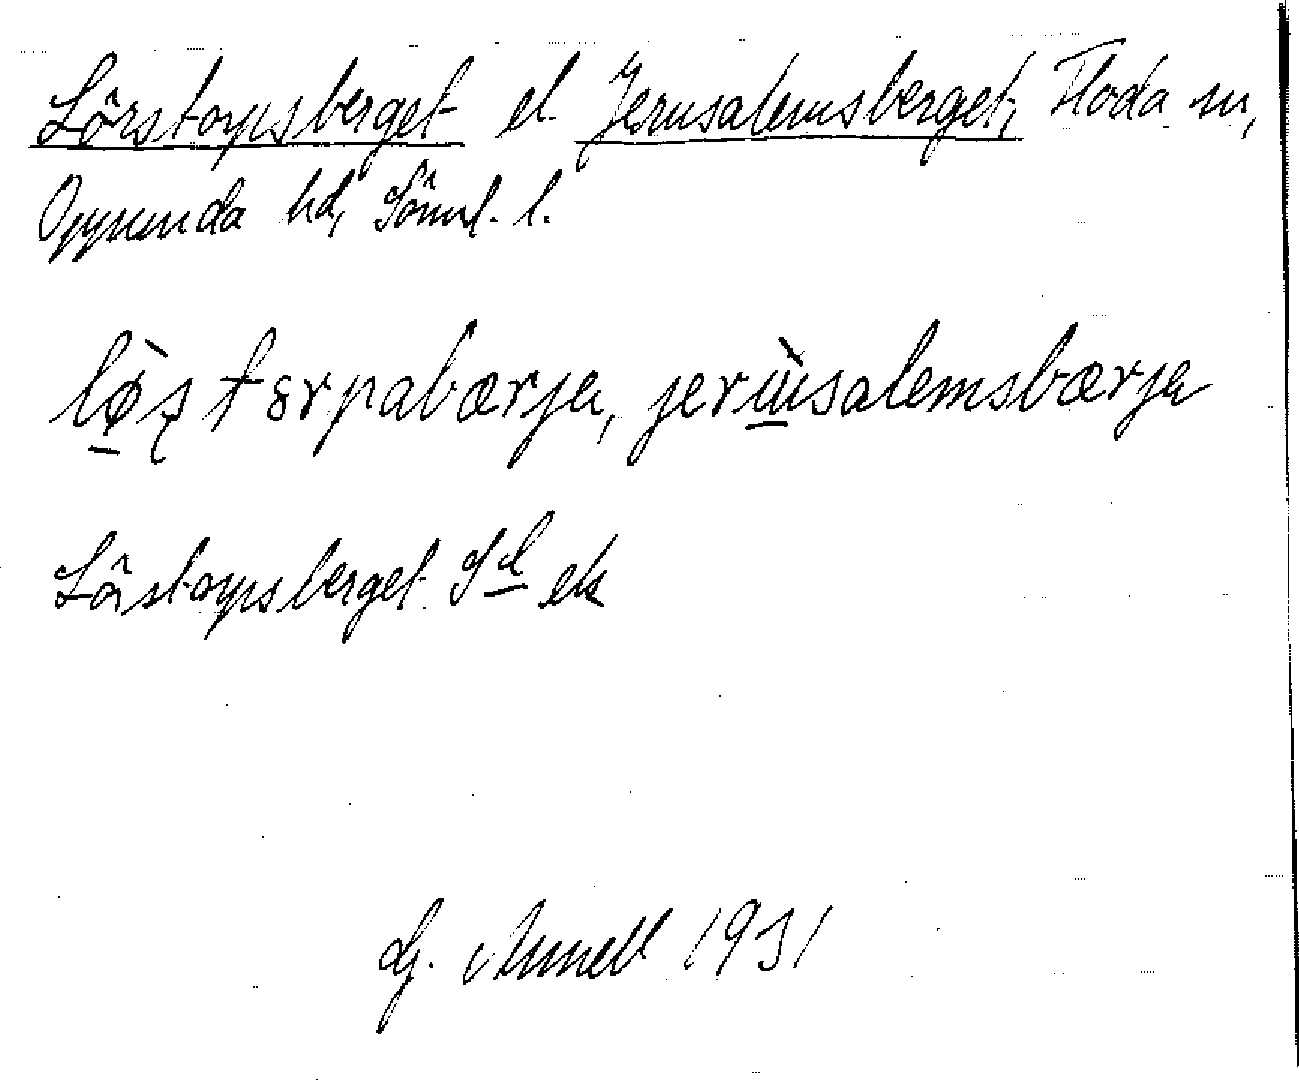 Lörstorpsberget el. Jerusalemsberget, Floda sn,
Oppunda hd, Söml. l.
lø̀ʂtɤrpabærjæ, jerɯ̀salemsbærjæ
Lörstorpsberget Sd ek
G. Annell 1931